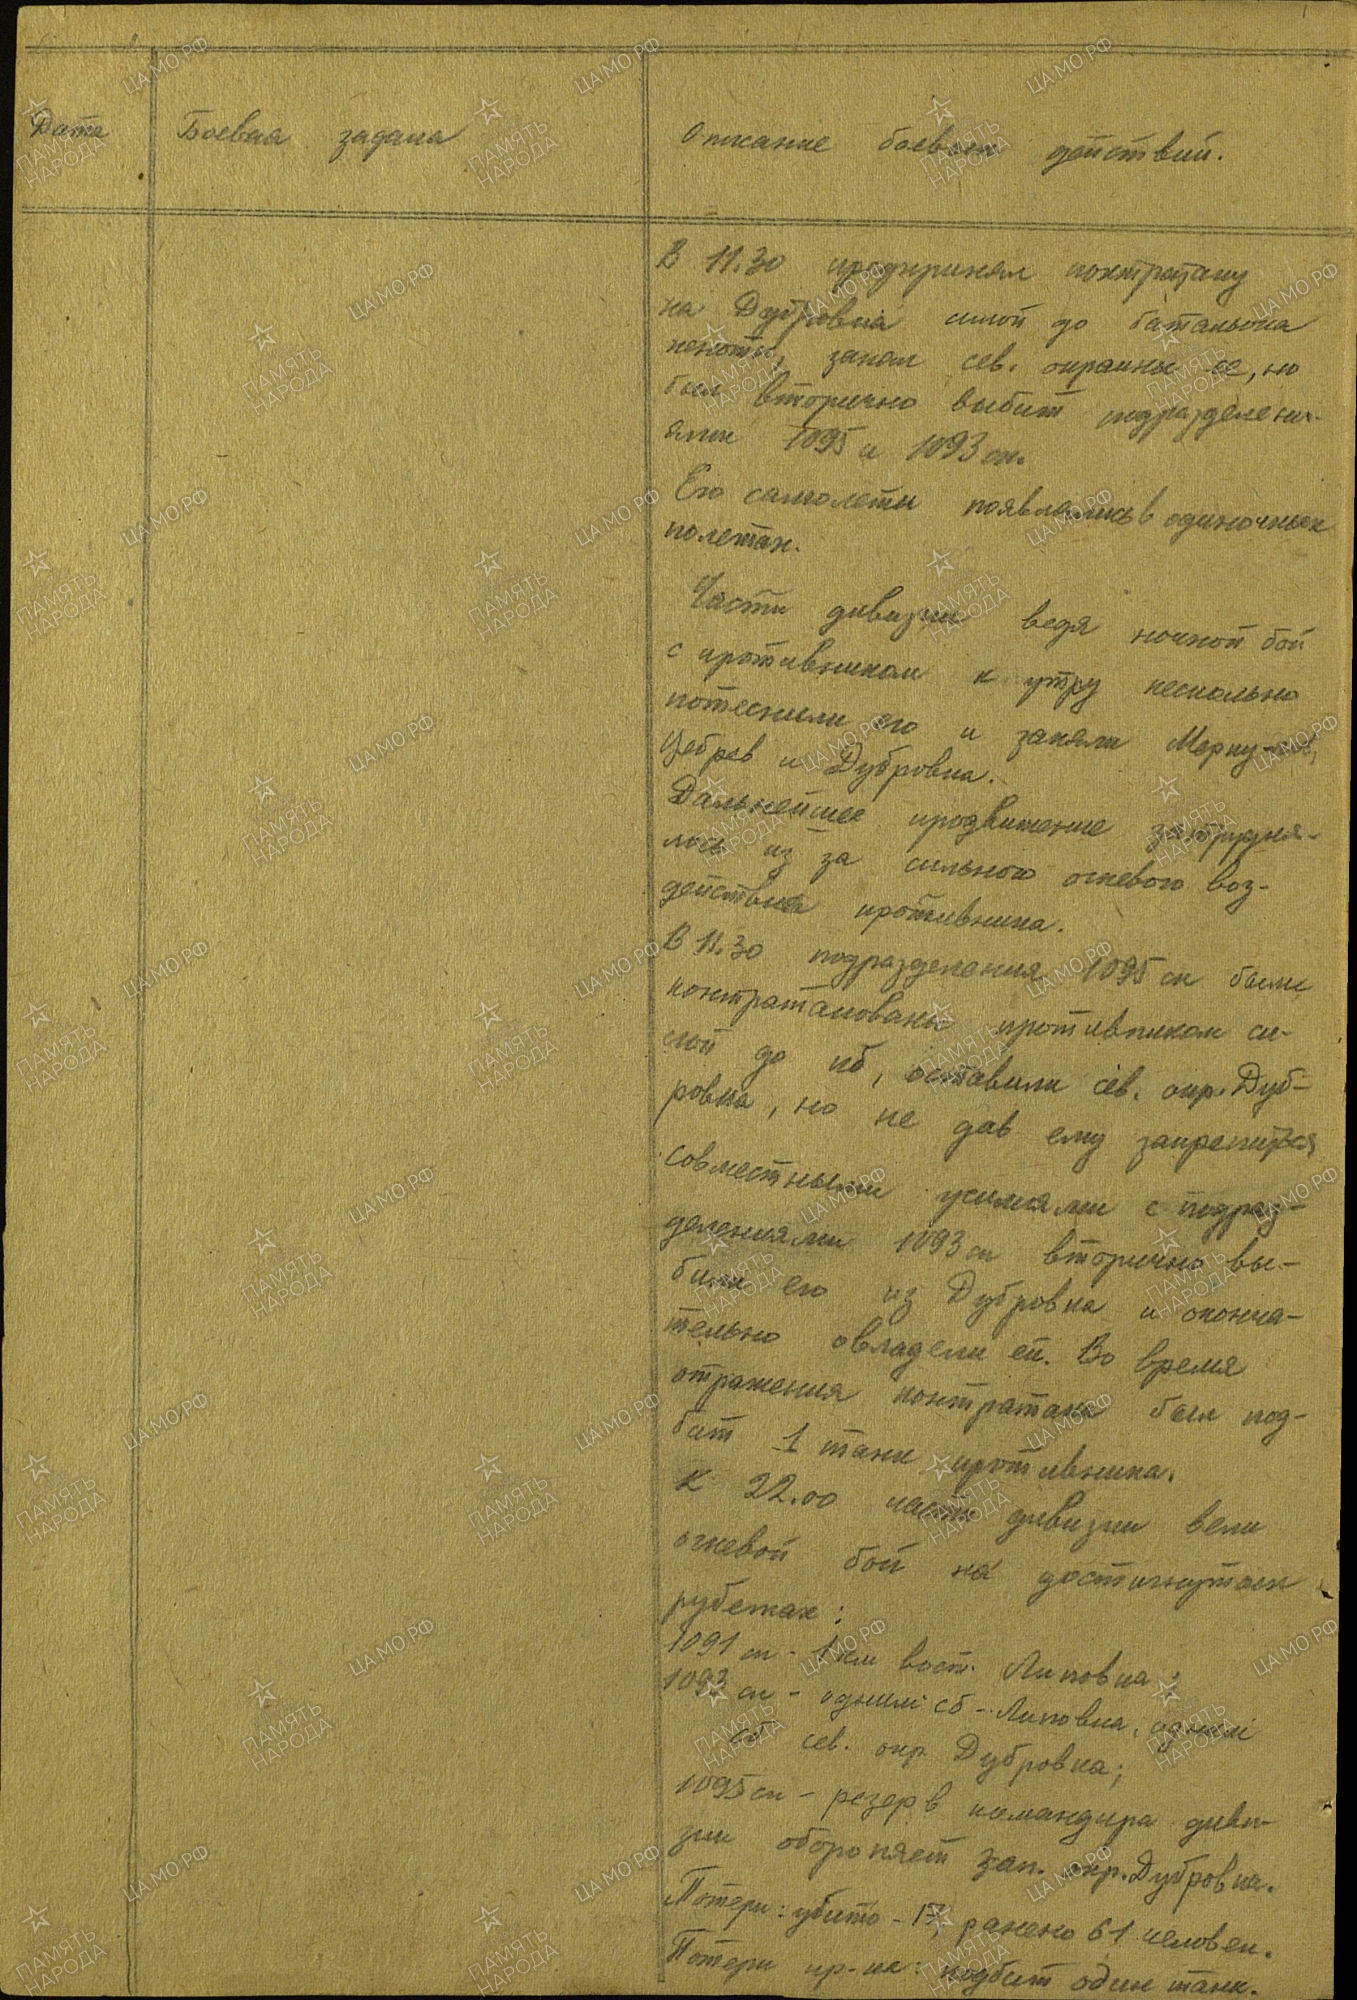 Дата Боевая задача Описание боевых действий.
В 11.30 предпринял контратаку
на Дубровка силой до батальона
пехоты, занял сев. окраины ее, но
был вторично выбит подразделени-
ями 1095 и 1093 сп.
Его самолеты появлялись в одиночных
полетах.
Части дивизии ведя ночной бой
с противником к утру несколько
потеснили его и заняли
и Дубровка.
Дальнейшее продвижение затрудня-
лось из за сильного огневого воз-
действия противника.
В 11.30 подразделения 1095 сп были
контратакованы противником си-
лой до пб, оставили сев. окр. Дуб-
ровка, но не дав ему закрепиться
совместными усилиями с подраз-
делениями 1093 сп вторично вы-
били его из Дубровка и оконча-
тельно овладели ей. Во время
отражения контратаки был под-
бит 1 танк противника.
К 22.00 части дивизии вели
огневой бой на достигнутых
рубежах:
1091 сп - 1 км вост. Липовка;
1093 сп - одним сб - Липовка, одним
сб сев. окр. Дубровка;
1095 сп - резерв командира диви-
зии обороняет зап. окр. Дубровка.
Потери: убито - 17, ранено 61 человек.
Потери пр-ка: подбит один танк.
ПАМЯТЬ
НАРОДА
ЦАМО.РФ